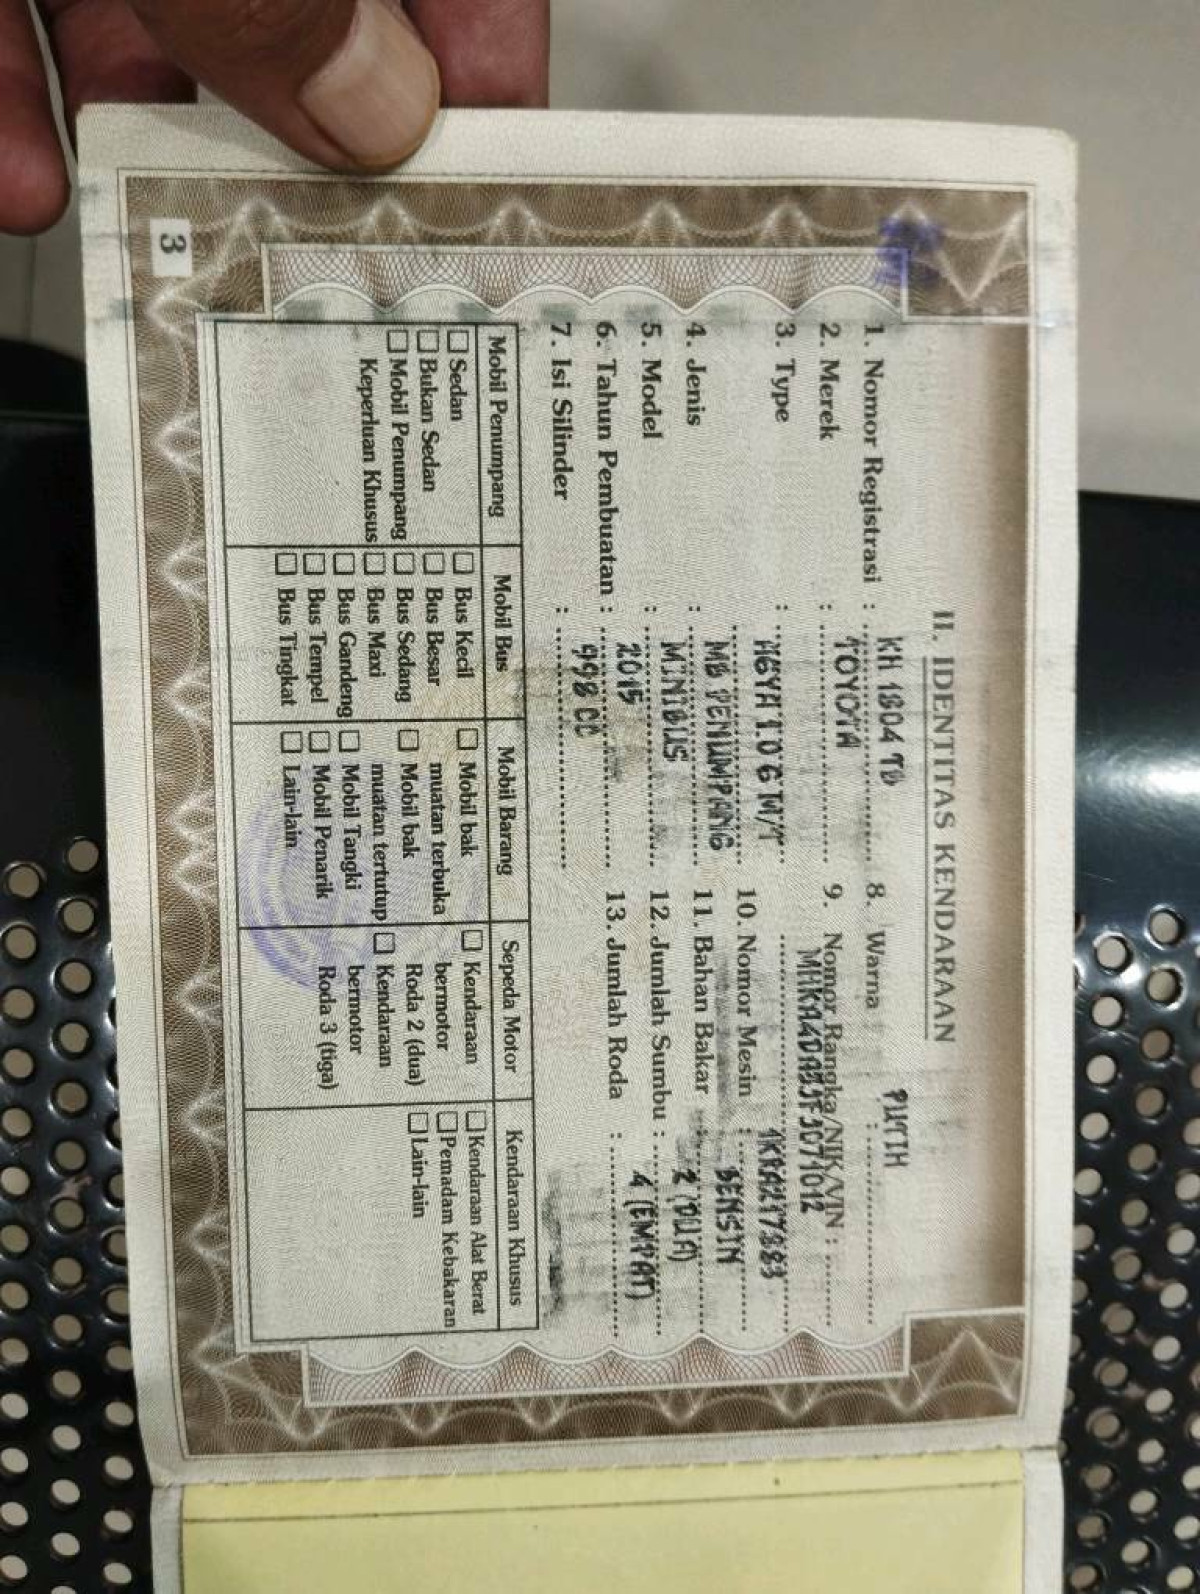 II. IDENTITAS KENDARAAN
1. Nomor Registrasi : KH 1804 TD
2. Merek : TOYOTA
3. Type : AGYA 1.0 G M/T
4. Jenis : MB PENUMPANG
5. Model : MINIBUS
6. Tahun Pembuatan : 2015
7. Isi Silinder : 998 CC
8. Warna : PUTIH
9. Nomor Rangka/NIK/VIN :
10. Nomor Mesin :
11. Bahan Bakar : BENSIN
12. Jumlah Sumbu : 2 (DUA)
13. Jumlah Roda : 4 (EMPAT)
Mobil Penumpang
☐ Sedan
☐ Bukan Sedan
☐ Mobil Penumpang
Keperluan Khusus
Mobil Bus
☐ Bus Kecil
☐ Bus Besar
☐ Bus Sedang
☐ Bus Maxi
☐ Bus Gandeng
☐ Bus Tempel
☐ Bus Tingkat
Mobil Barang
☐ Mobil bak
muatan terbuka
☐ Mobil bak
muatan tertutup
☐ Mobil Tangki
☐ Mobil Penarik
☐ Lain-lain
Sepeda Motor
☐ Kendaraan
bermotor
Roda 2 (dua)
☐ Kendaraan
bermotor
Roda 3 (tiga)
Kendaraan Khusus
☐ Kendaraan Alat Berat
☐ Pemadam Kebakaran
☐ Lain-lain
3